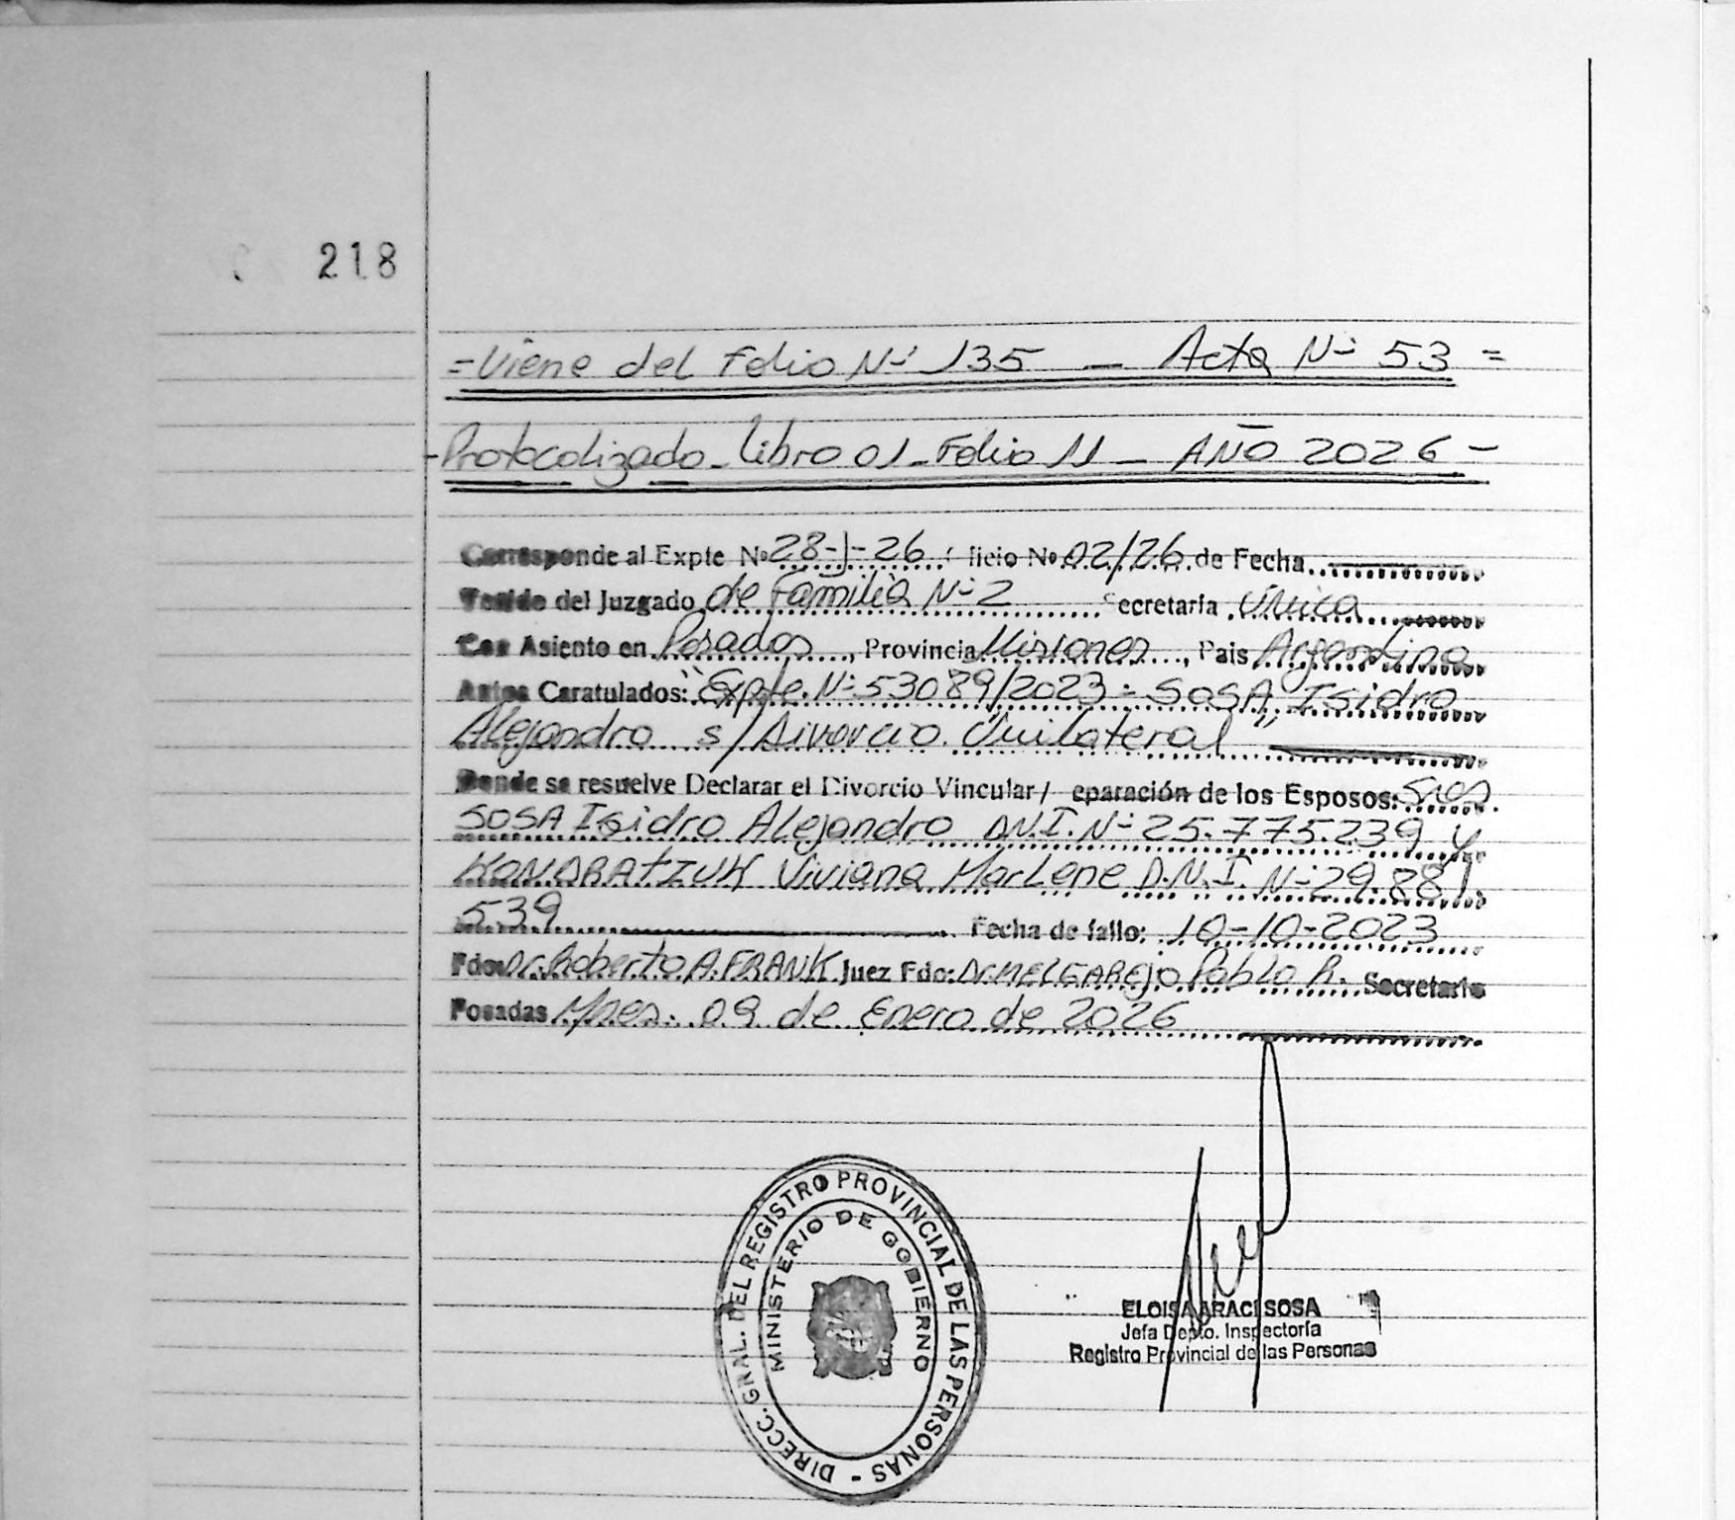 218
=Viene del Folio Nº 135 — Acta Nº 53 =
-Protocolizado-Libro 01-Folio 11 - AÑO 2026-
Corresponde al Expte Nº 28-J-26 ficio Nº 02/26 de Fecha
del Juzgado de Familia Nº 2 ecretaría Única
Con Asiento en Posadas, Provincia Misiones, Pais Argentina
Autos Caratulados: "Expte. Nº 53089/2023 - SOSA Isidro
Alejandro s/Divorcio Unilateral"
Donde se resuelve Declarar el Divorcio Vincular/ eparación de los Esposos: Sres.
SOSA Isidro Alejandro D.N.I. Nº 25.775.239 y
KONDRATZUK Viviana Marlene D.N.I. Nº 29.881.
539 Fecha de fallo: 10-10-2023
Fdo: Dr. Roberto A. FRANK Juez Fdo: Dr. MELGAREJO Pablo R. Secretario
Posadas Mnes. 09 de Enero de 2026
DIRECC. GRAL. DEL REGISTRO PROVINCIAL DE LAS PERSONAS -
MINISTERIO DE GOBIERNO
ELOISA ARACI SOSA
Jefa Depto. Inspectoría
Registro Provincial de las Personas